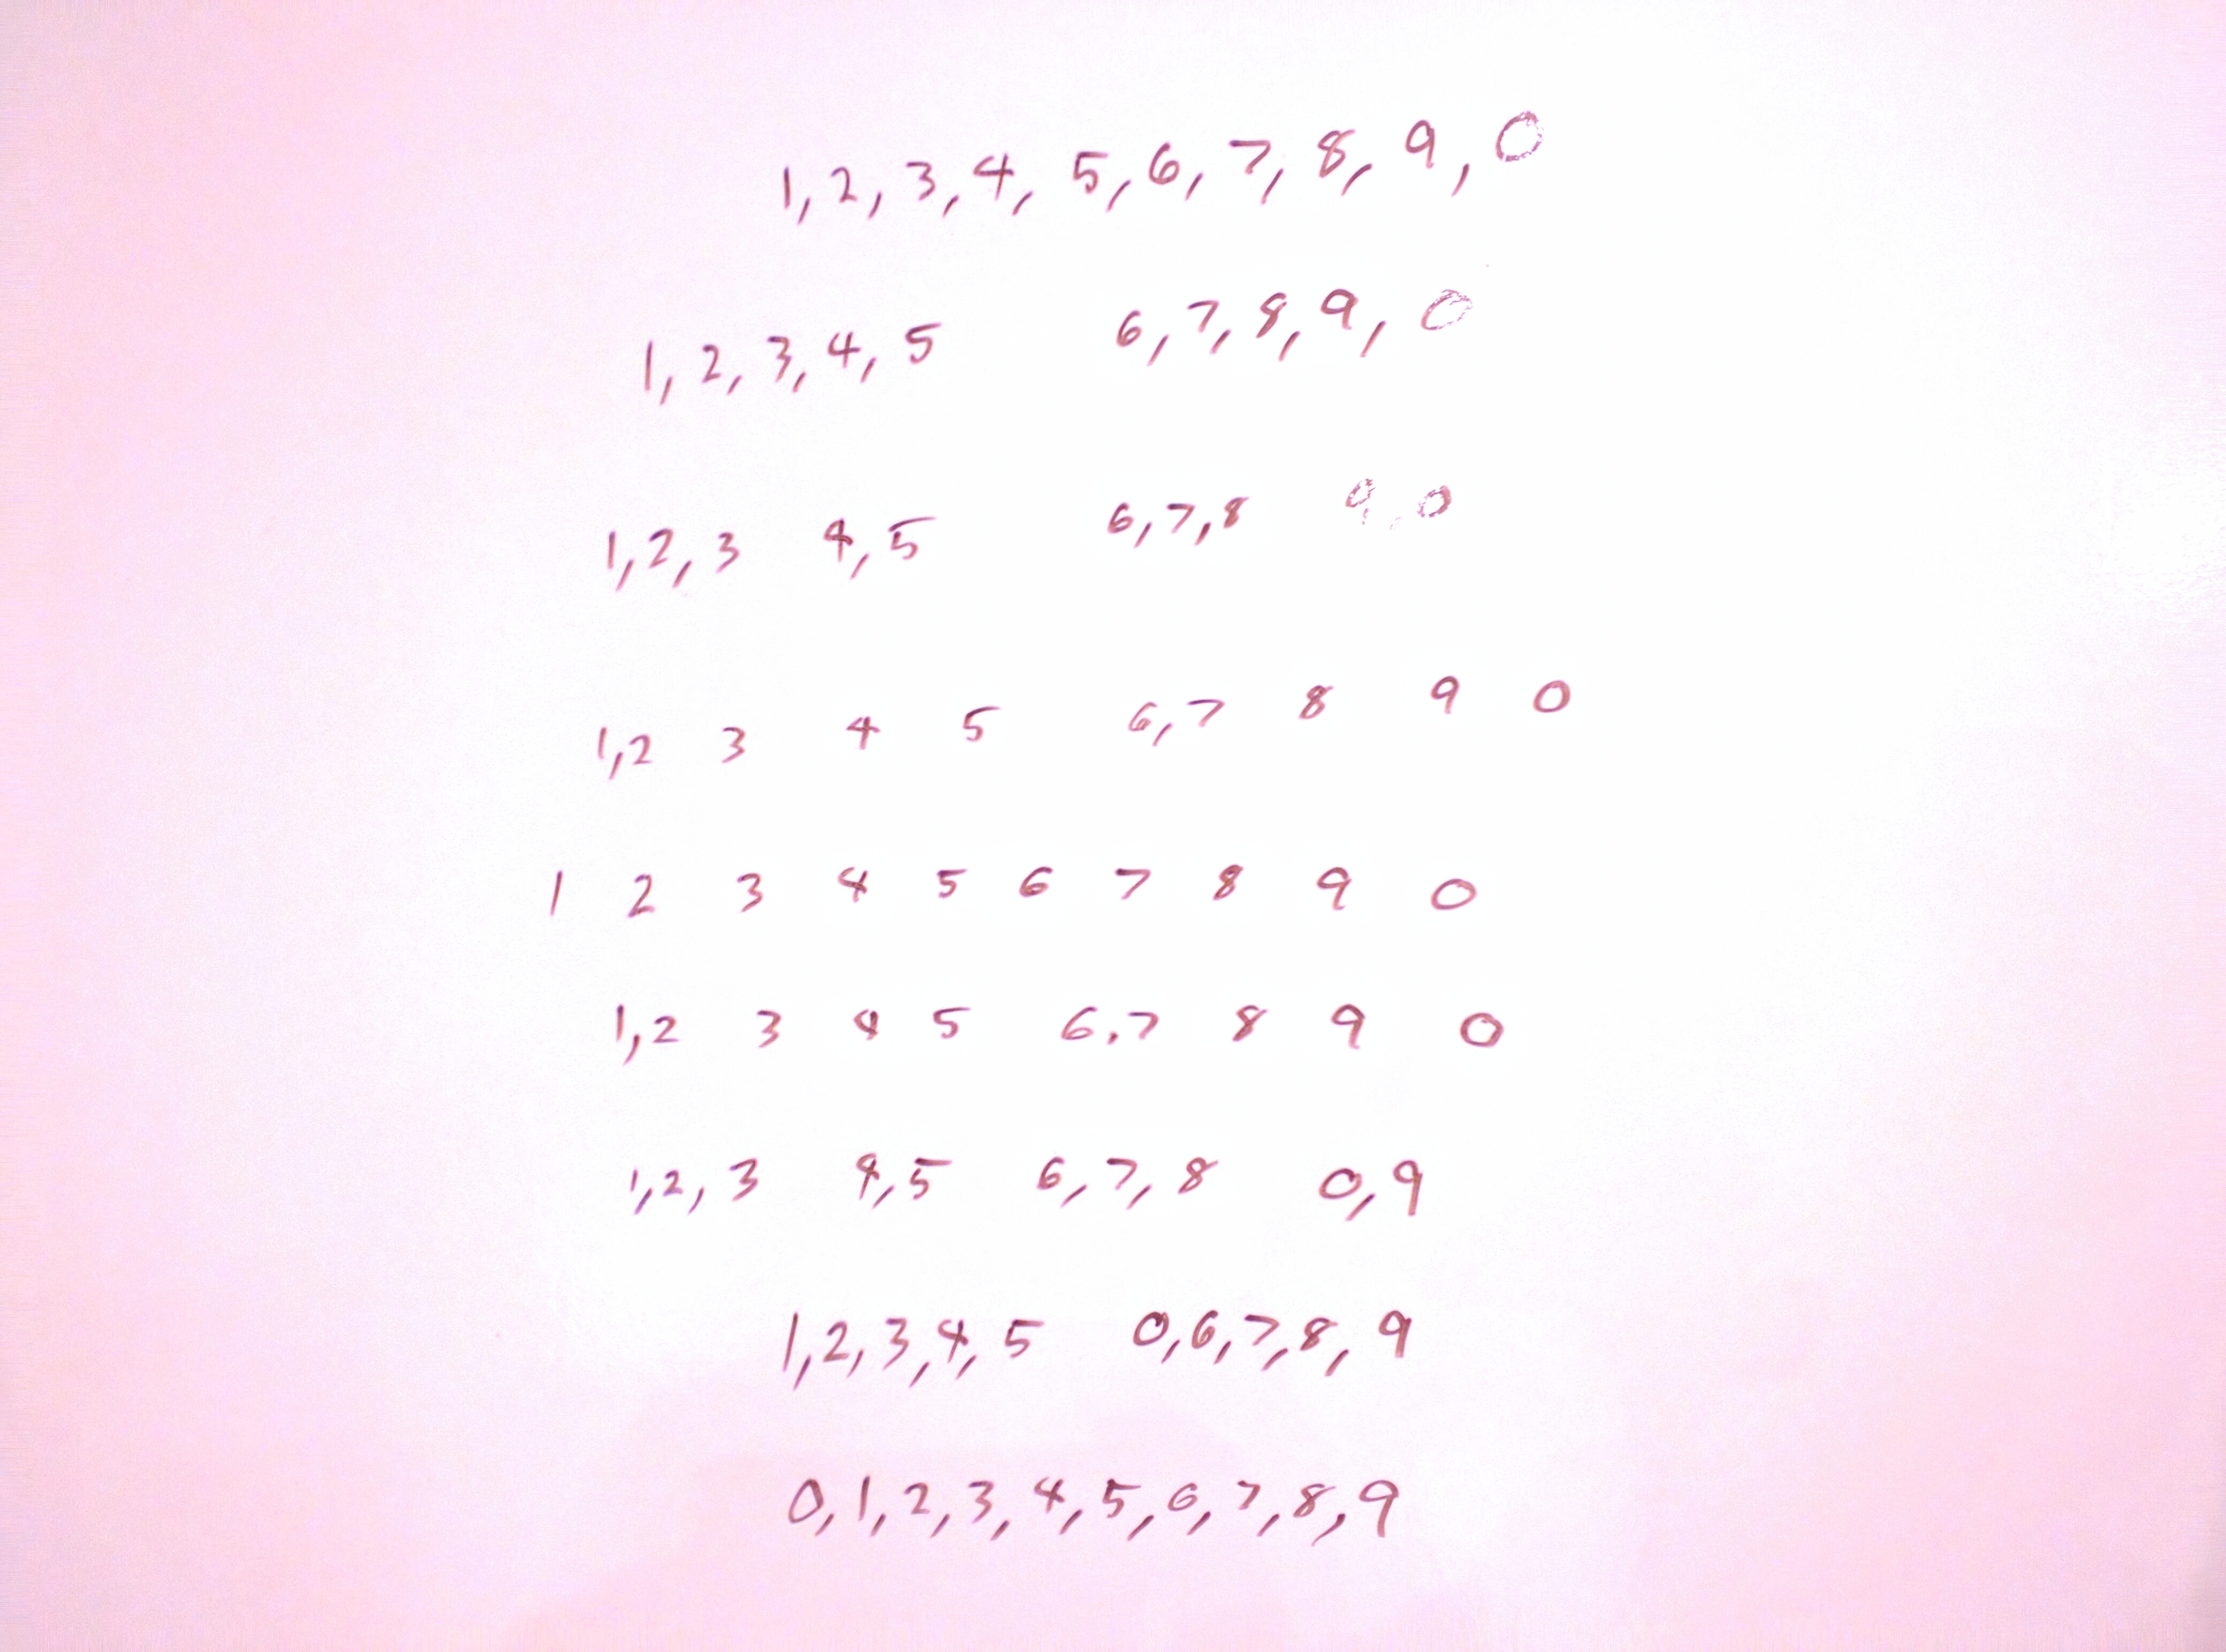 1, 2, 3, 4, 5, 6, 7, 8, 9, 0
1, 2, 3, 4, 5 6, 7, 8, 9, 0
1, 2, 3 4, 5 6, 7, 8 9, 0
1, 2 3 4 5 6, 7 8 9 0
1 2 3 4 5 6 7 8 9 0
1, 2 3 4 5 6, 7 8 9 0
1, 2, 3 4, 5 6, 7, 8 0, 9
1, 2, 3, 4, 5 0, 6, 7, 8, 9
0, 1, 2, 3, 4, 5, 6, 7, 8, 9